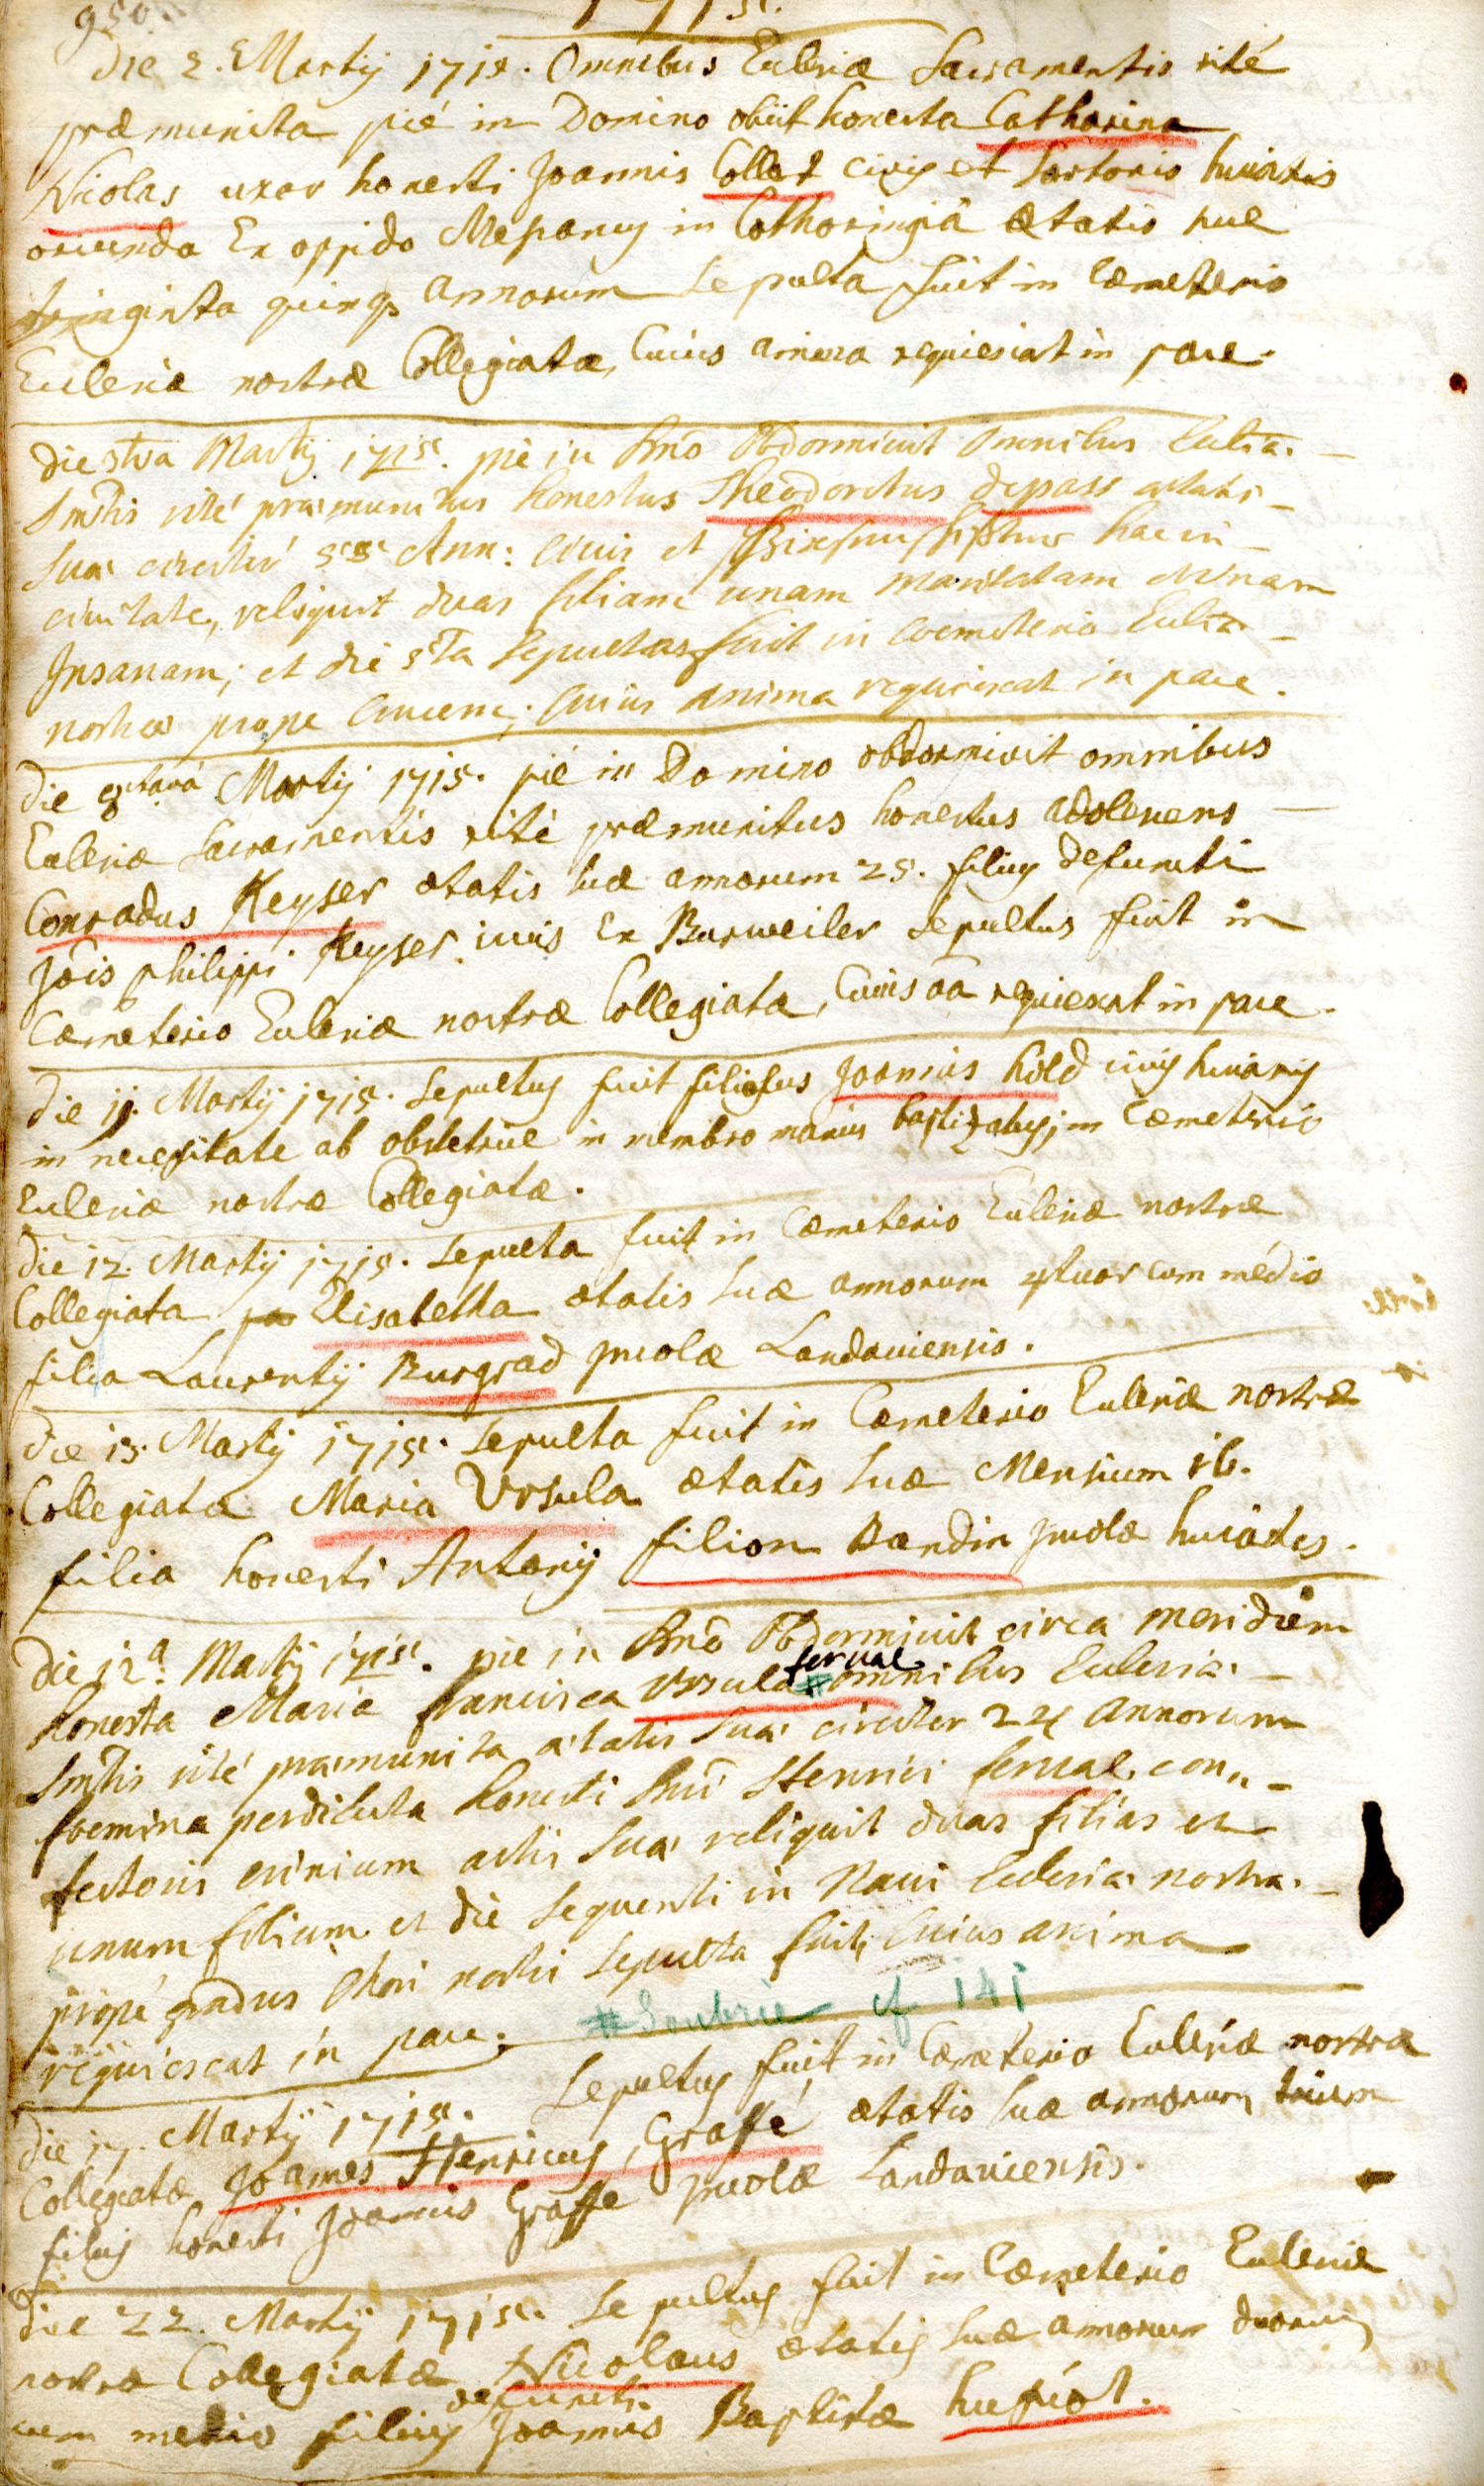 950
1715.
Die 2. Martij 1715. Omnibus Ecclesiæ Sacramentis rité
præmunita pié in Domino obiit honesta Catharina
Nicolas uxor honesti Joannis Collet civis et sartoris huiatis
oriunda Ex oppido in Lothoringiâ ætatis suæ
quinq3 annorum Sepulta fuit in Cæmeterio
Ecclesiæ nostræ Collegiatæ, Cuius anima requiescat in pace.
Die 5ta Martij 1715. pié in Dno Obdormivit Omnibus Ecclia.
Smtis rité præmunitus honestus Theodoretus depass ætatis
suæ circiter Ann: Civis et hac in
civitate, reliquit duas filias unam maritatam et unam
Insanam; et die Sepultus fuit in Coemeterio Ecclia.
nostræ prope Crucem; Cuius anima requiescat in pace.
Die 8tava Martij 1715. pié in Domino obdormivit omnibus
Ecclesiæ Sacramentis rité præmunitus honestus adolescens
Conradus Keyser ætatis suæ annorum 25. filius defuncti
Jois philippi Keyser civis Ex Burweiler Sepultus fuit in
Cæmeterio Ecclesiæ nostræ Collegiatæ, Cuius aa requiescat in pace.
Die 11. Martij 1715. Sepultus fuit filiolus Joannis hold civis huiatis
in necessitate ab obstetrice in membro manus baptizatus, in Cæmeterio
Ecclesiæ nostræ Collegiatæ.
Die 12. Martij 1715. Sepulta fuit in Cæmeterio Ecclesiæ nostræ
Collegiata Elisabetha ætatis suæ annorum 4tuor cum médio
filia Laurentij Burgrad incolæ Landaviensis.
Die 13. Martij 1715. Sepulta fuit in Cæmeterio Ecclesiæ nostræ
Collegiatæ Maria Ursula ætatis suæ Mensium 16.
filia honesti Antonij filion Bandin incolæ huiatis.
Die 12a. Martij 1715. pie in Dno Obdormivit circa meridiem
serval
honesta Maria francisca Ursula # omnibus Ecclesiæ
Smtis rité præmunita ætatis suæ circiter 24 annorum
foemina perdilecta honesti Dni Henrici serval, con,,
fectoris crinium artis suæ reliquit duas filias et
unum filium et die sequenti in Navi Ecclesiæ nostra.
propé gradus Chori nostri sepulta fuit, Cuius anima
requiescat in pace. # Soubrie cf 141
Die 17. Martij 1715. Sepultus fuit in Cæmeterio Ecclesiæ nostræ
Collegiatæ Joannes Henricus Graffé ætatis suæ annorum trium
filius honesti Joannis Graffe incolæ Landaviensis.
Die 22. Martij 1715. Sepultus fuit in Cæmeterio Ecclesiæ
nostræ Collegiatæ Nicolaus ætatis suæ annorum duorum
defuncti
cum medio filius Joannis Baptistæ hupiot.